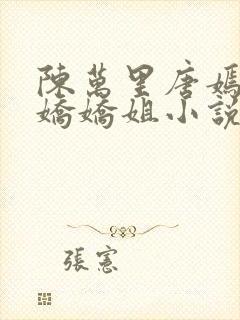 陳萬里唐嫣
嬌嬌姐小說
張憲